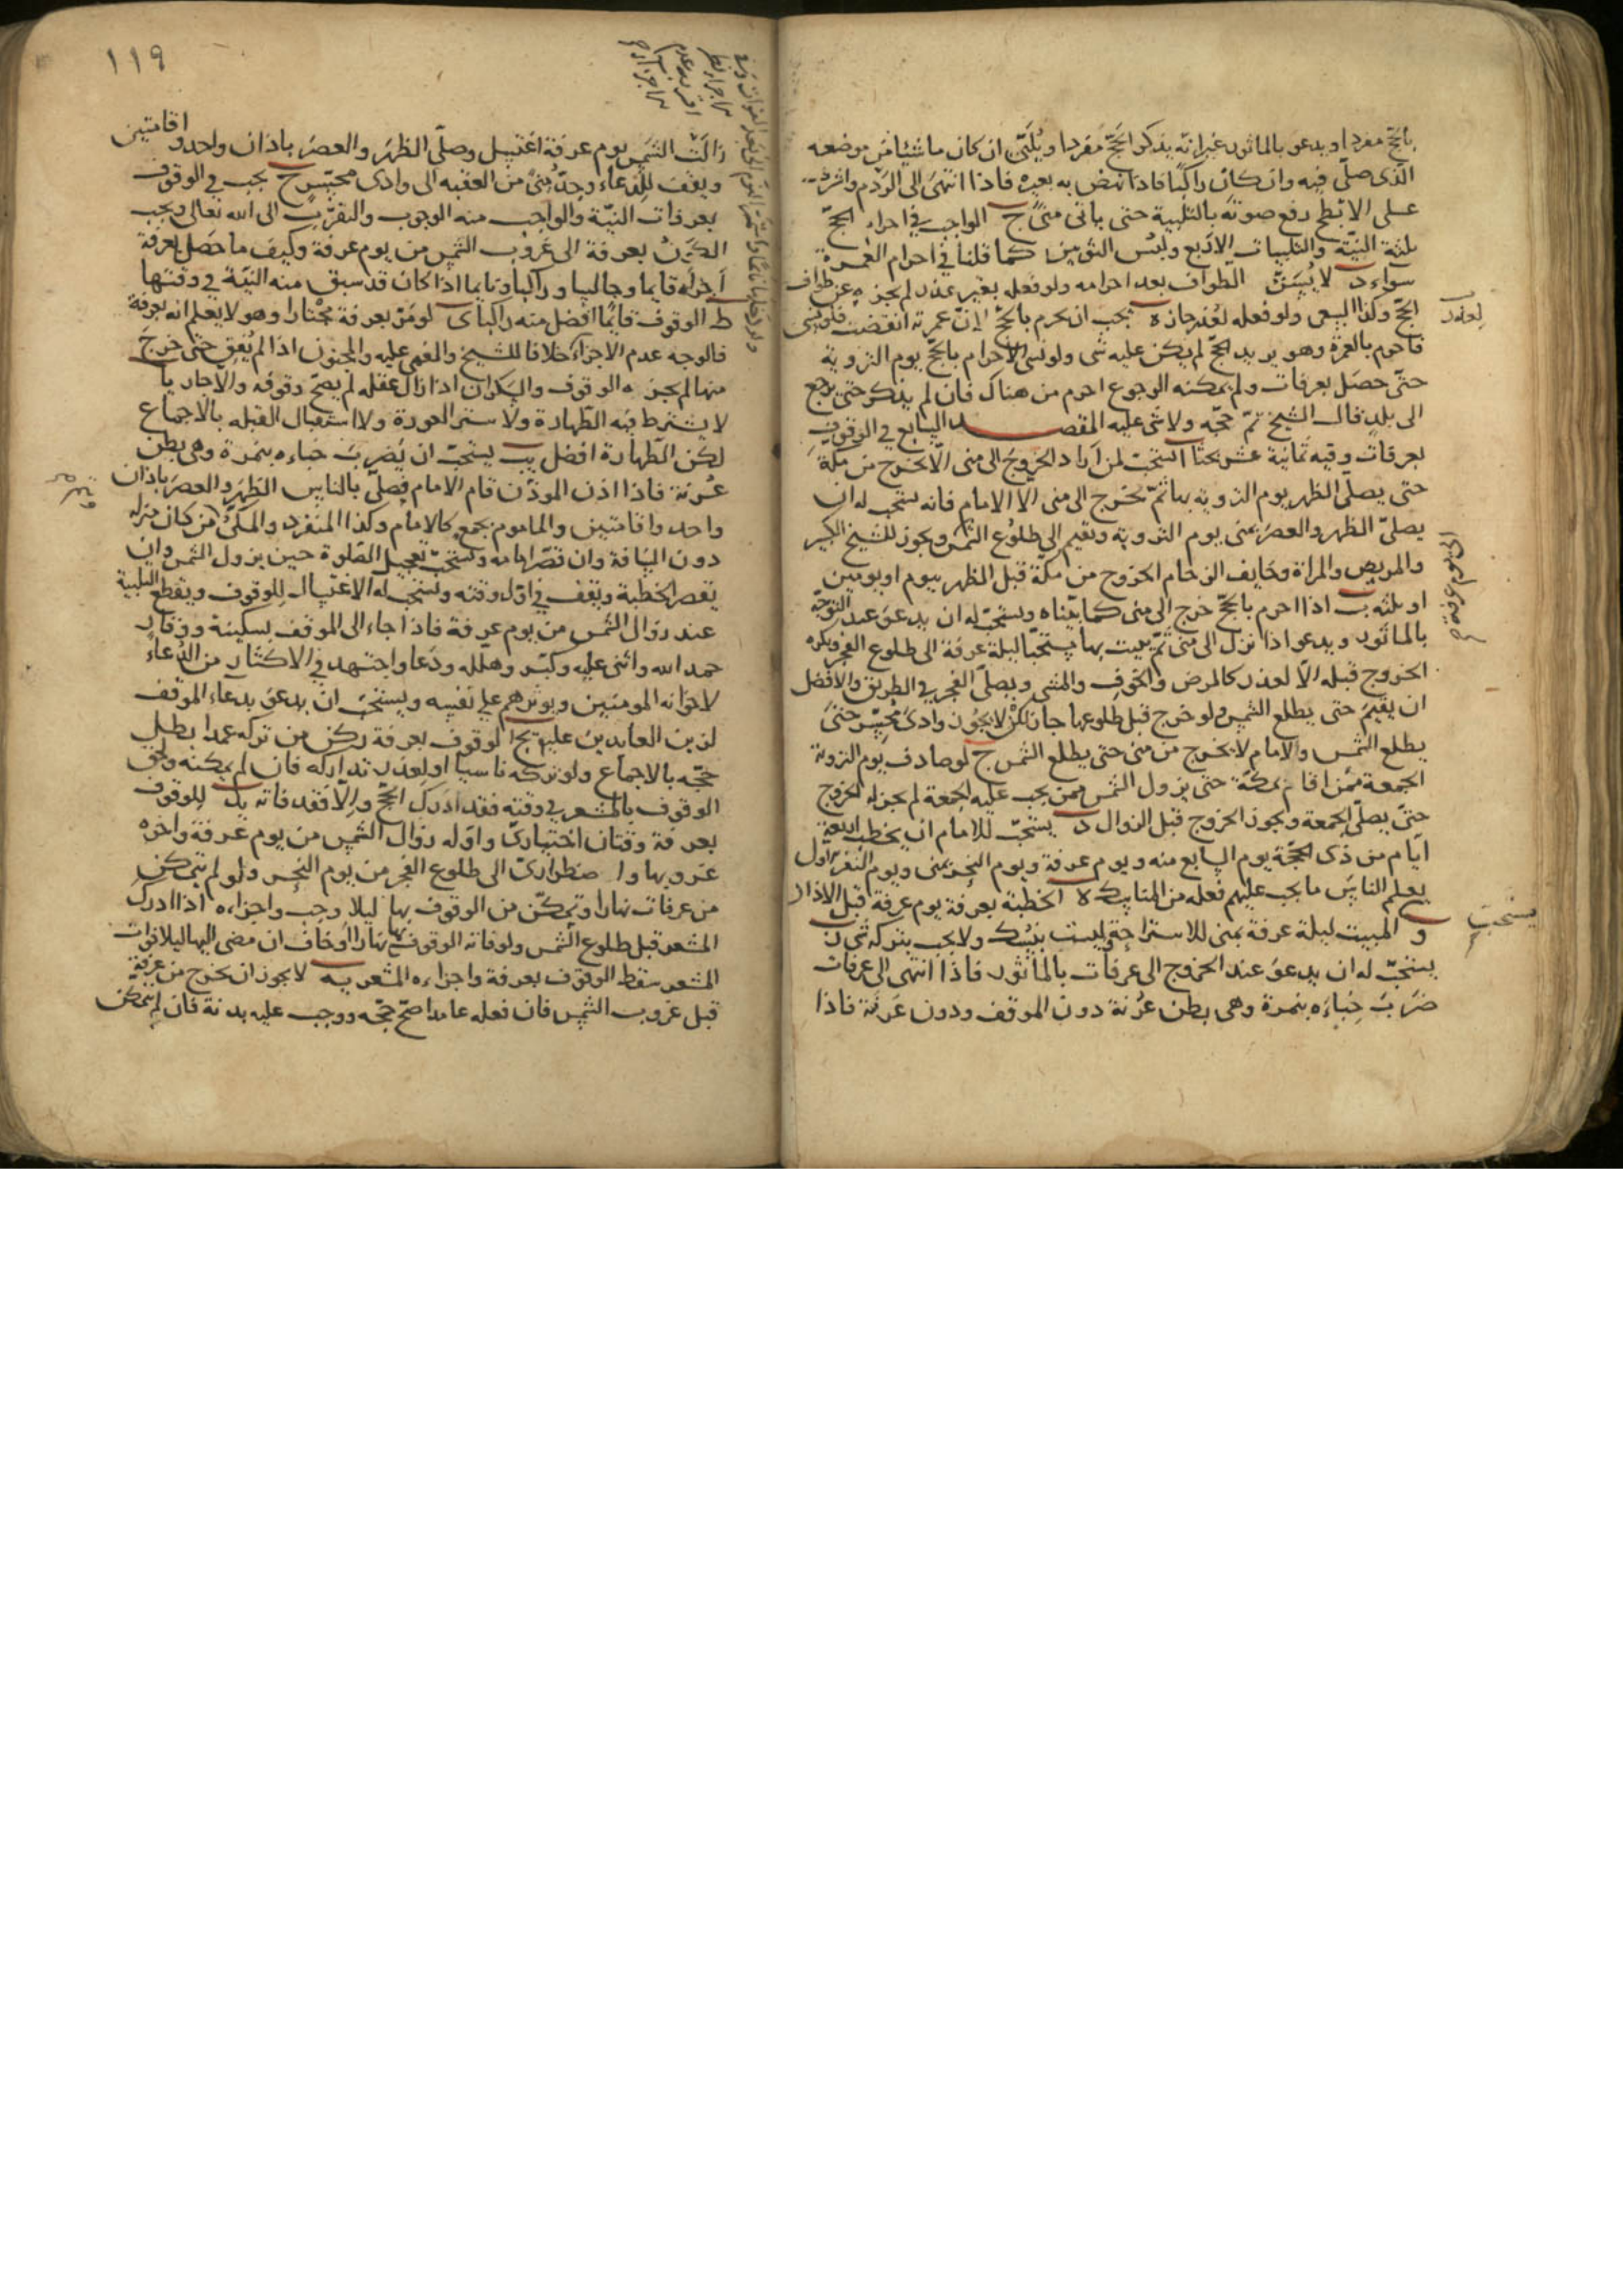 بالحجّ مفردا ويدعو بالماثور غير انّه يذكر الحجّ مفردا ويُلَبّي ان كان ماشيًا من موضعه
الّذى صلّى فيه وان كان راكبًا فاذا نهض به بعيره فاذا انتهى الى الرَدْم واشرف
على الابطح رفع صوته بالتلبية حتى ياتى منى ج الواجب فى احرام الحجّ
ثلثة النيّة والتلبيات الاربع ولبُس الثوبين كما قلنا فى احرام العُمرة
سواء د لا يُسَنّ الطواف بعد احرامه ولو فعله بغير عذر لم يجزه عن طواف
الحجّ وكذا السعى ولو فعله لعُذر جاز ه يجب ان يحرم بالحجّ لانّ عمرته انقضت فلو نسى
لعذر
فاحرم بالعمرة وهو يريد الحجّ لم يكن عليه شى ولو نسى الاحرام بالحجّ يوم التروية
حتّى حصَل بعرفات ولم يمكنه الرجوع احرم من هناك فان لم يذكر حتى يرجع
الى بلده قال الشيخ تمّ حجّه ولا شى عليه المقصد السابع فى الوقوف
بعرفات وفيه ثمانية عشر بحثا ا يستحبّ لمن اراد الخروج الى منى الّا يخرج من مكّة
حتى يصلّى الظهر يوم التروية بها ثمّ يخرج الى منى الّا الامام فانه يستحب له ان
يصلىّ الظهر والعصر بمنى يوم التروية ويقيم الى طلوع الشمس ويجوز للشيخ الكبير
والمريض والمراة وخايف الزحام الخروج من مكّة قبل الظهر بيوم او يومين
او ثلثه ب اذا احرم بالحجّ خرج الى منى كما بيّناه ويستحبّ له ان يدعو عند التوجّه
بالماثور ويدعو اذا نزل الى منى ثمّ يبيت بها مستحبّا ليلة عرفة الى طلوع الفجر ويكره
الخروج قبله الّا لعذر كالمرض والخوف والمشى ويصلّى الفجر فى الطريق والافضل
ان يقيمَ حتى يطلع الشمس ولو خرج قبل طلوعها جاز لكن لا يجُوز وادى محسّر حتى
يطلع الشمس والامام لا يخرج من منى حتى يطلع الشمس ج لو صادف يوم التروية
الجمعة فمن اقام بمكّة حتى يزول الشمس ممن يجب عليه الجمعة لم يجز له الخروج
حتّى يصلّى الجمعة ويجوز الخروج قبل الزوال د يستحبّ للامام ان يخطب اربعة
ايّام من ذى الحجّة يوم السابع منه ويوم عرفة ويوم النحر بمنى ويوم النفر الاول
يعلم الناسَ ما يجب عليهم فعله من المناسك ه الخطبة بعرفة يوم عرفة قبل الاذان
و المبيت ليلة عرفة بمنى للاستراحة وليست بنسُك ولا يجب بتركه شى ز
يستحب
يستحبّ له ان يدعو عند الخروج الى عرفات بالماثور فاذا انتهى الى عرفات
ضرَبَ خِباءَه بنمرة وهى بطن عُرنة دون الموقف ودون عَرفة فاذا
١١٩
زالَت الشمس يوم عرفة اغتسل وصلّى الظهر والعصر باذان واحد واقامتين
ويقف للدعاء وحدُّ منىً من العقبه الى وادى محسّر ح يجب فى الوقوف
بعرفات النيّة والواجب منه الوجوب والتقرّب الى الله تعالى ويجب
الكَوْنُ بعرفة الى غروب الشمس من يوم عرفة وكيف ما حَصَل بعرفة
اجزاه قايما وجالسا وراكبا ونايما اذا كان قد سبق منه النيّة فى وقتها
ط الوقوف قايما افضل منه راكبا ى لو مرّ بعرفة مجْتازا وهو لا يعلم انه بعرفة
فالوجه عدم الاجزاء خلافا للشيخ والمغمى عليه والمجنون اذا لم يُفق حتى خرج
منها لم يجزه الوقوف والسكران اذا زال عقله لم يصحّ وقوفه والّا جاز يا
لا يشترط فيه الطهارة ولا ستر العورة ولا استقبال القبله بالاجماع
لكن الطهارة افضل يب يستحبّ ان يَضرِبَ خباءه بنمرة وهى بطن
عُرنة فاذا اذن الموذّن قام الامام فصلّى بالناس الظهر والعصر باذان
واحد واقامتين والماموم يجمع كالامام وكذا المنفرد والمكىُّ ومَن كان منزله
دون المسافة وان قصّر امامه ويستحبّ تعجيل الصّلوة حين يزول الشمس وان
يقصر الخطبة ويقف فى اوّل وقته ويستحب له الاغتسال للوقوف ويقطع التلبية
عند زوال الشمس من يوم عرفة فاذا جاء الى الموقف بسكينة ووقار
حمد الله واثنى عليه وكبّر وهلله ودعا واجتهد فى الاكثار من الدعاء
لاخوانه المومنين ويوثرهم على نفسه ويستحبّ ان يدعو بدعاء الموقف
لزين العابدين عليه يج الوقوف بعرفة ركن من تركه عمدا بطل
حجّه بالاجماع ولو تركه ناسيا او لعذر تداركه فان لم يمكنه ولحق
الوقوف بالمشعر فى وقته فقد ادرك الحجّ والّا فقد فاته يد للوقوف
بعرفة وقتان اختيارىّ واوّله زوال الشمس من يوم عرفة واخره
غروبها واضطرارىّ الى طلوع الفجر من يوم النحر ولو لم يتمكن
من عرفات نهارا وتمكّن من الوقوف بها ليلا وجب واجزاءه اذا ادرك
المشعر قبل طلوع الشمس ولو فاته الوقوف بها نهارا وخاف ان مضى اليها ليلا فوات
المشعر سقط الوقوف بعرفة واجزاءه المشعر يه لا يجوز ان يخرج من عرفة
قبل غروب الشمس فان فعله عامدا صحّ حجّه ووجب عليه بدنة فان لم يتمكن